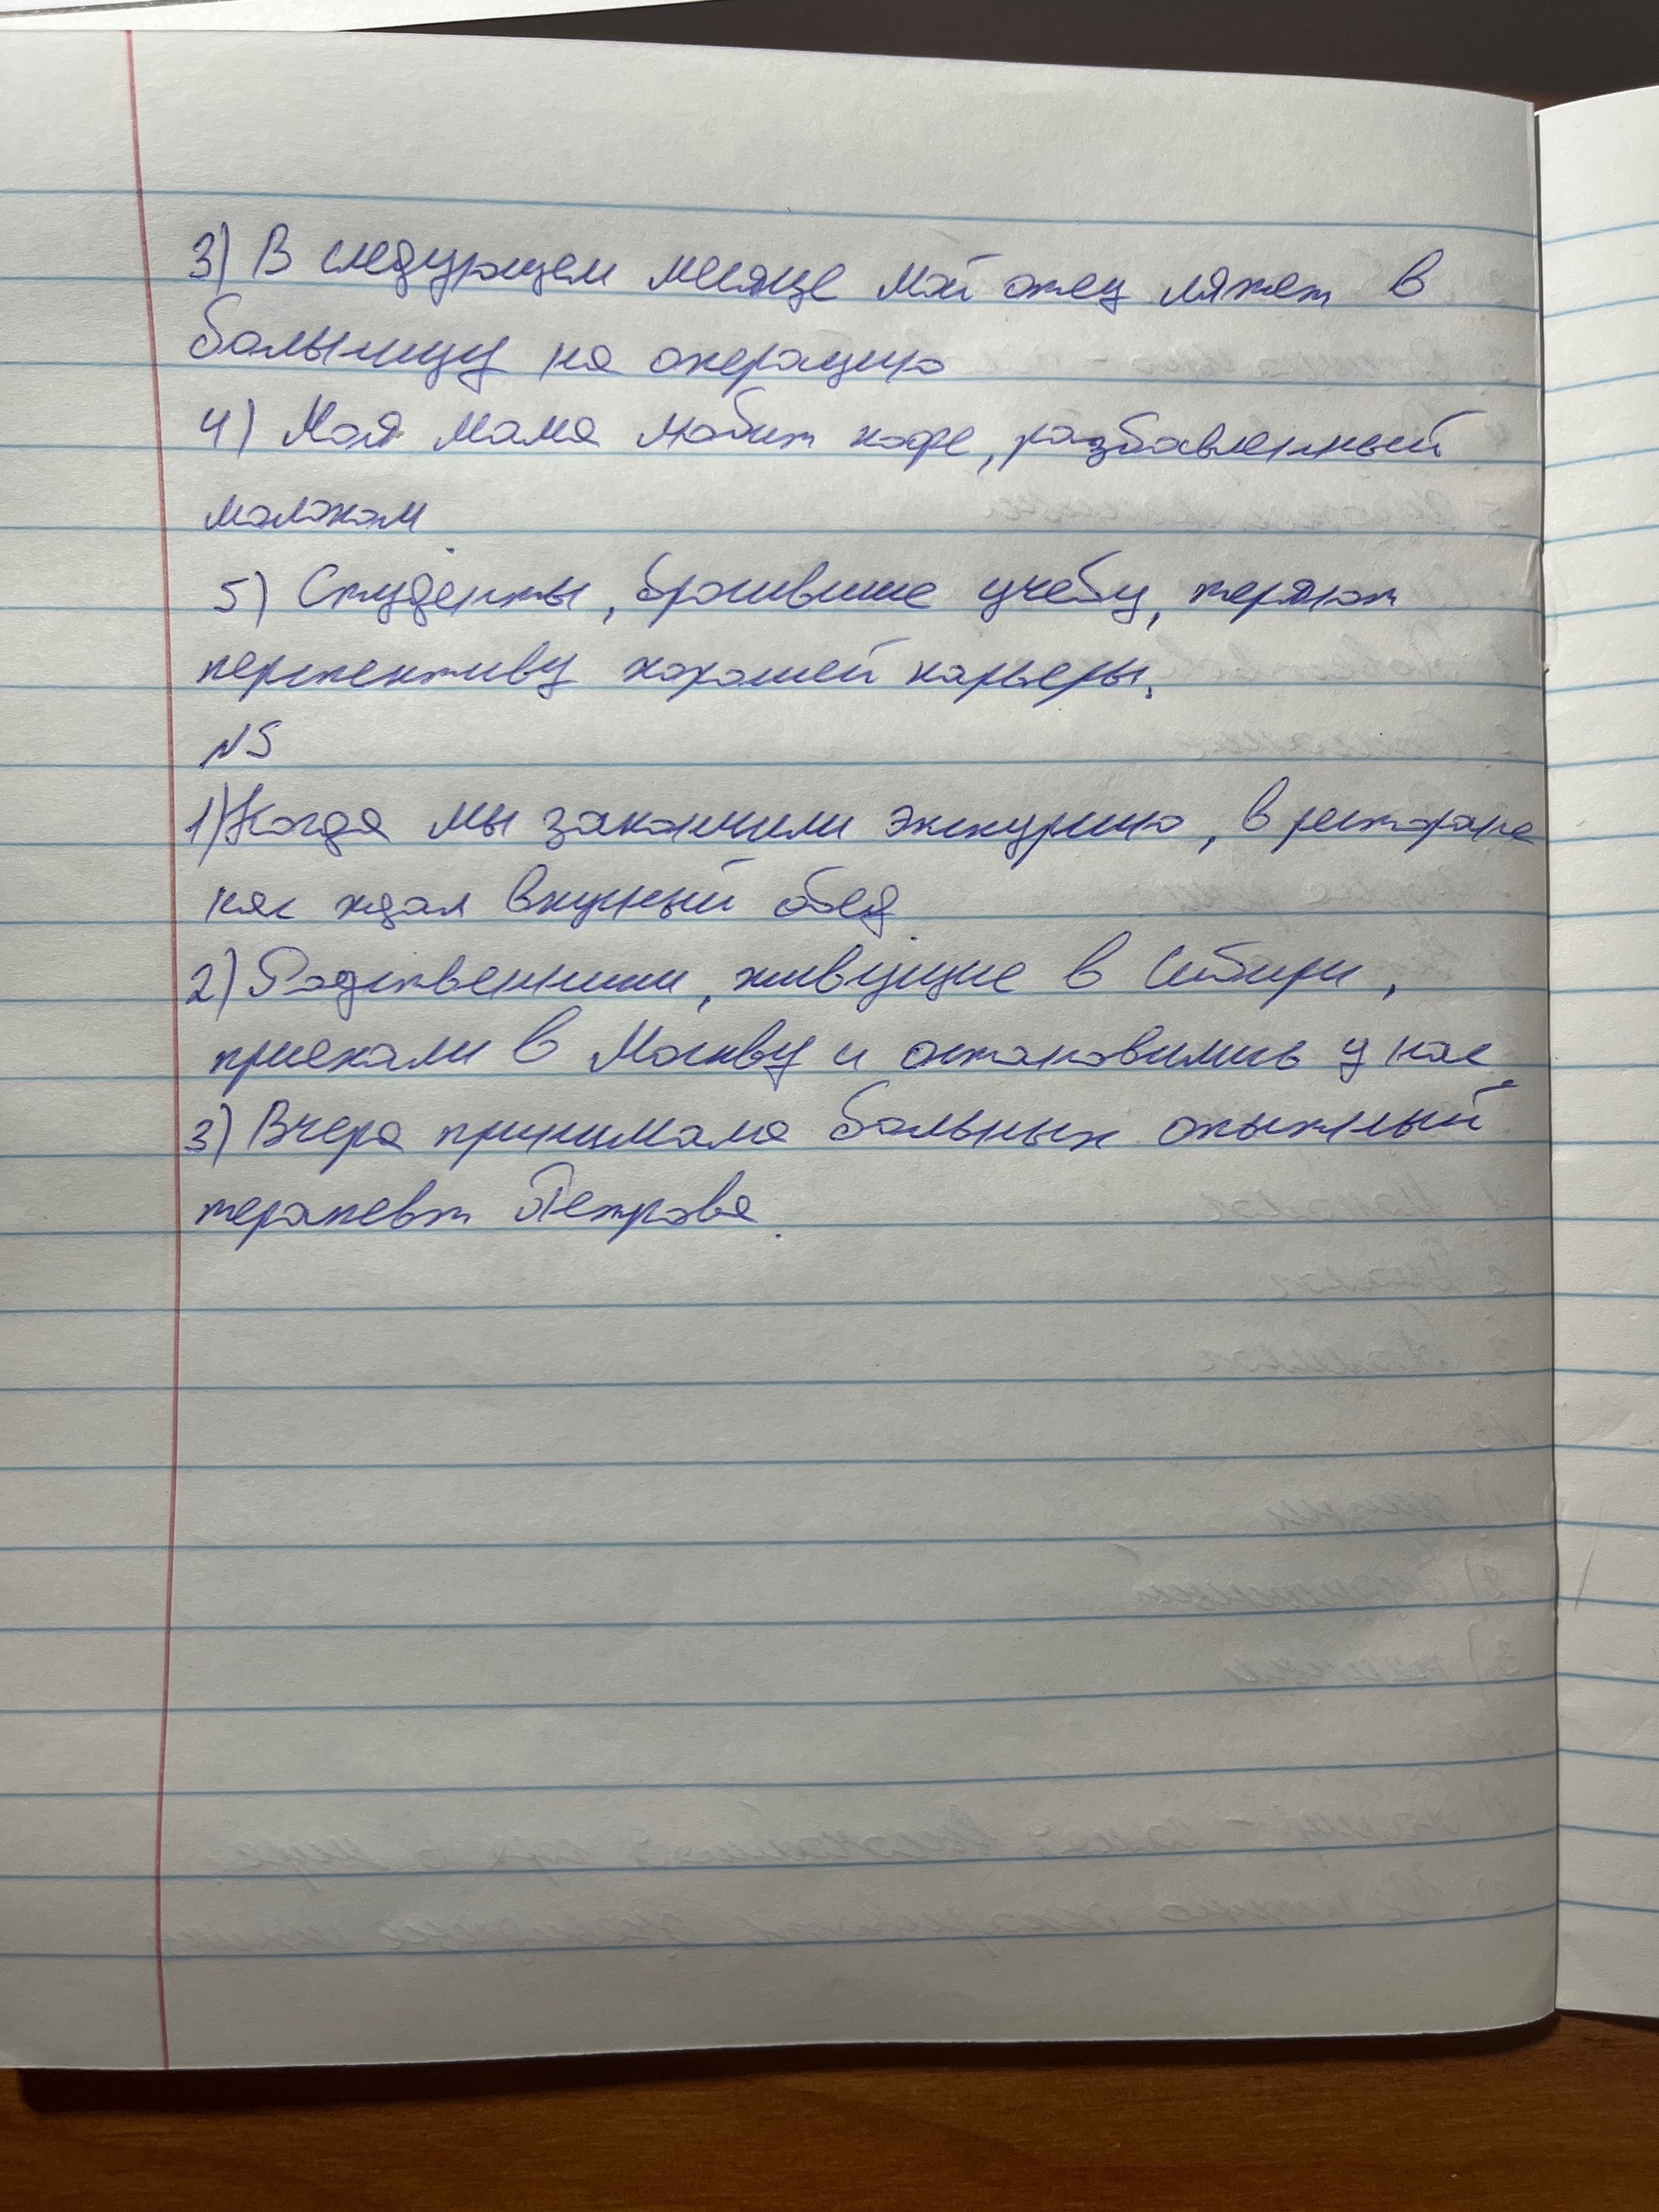 3) В следующем месяце мой отец ляжет в
больницу на операцию
4) Моя мама любит кофе, разбавленный
молоком.
5) Студенты, бросившие учебу, теряют
перспективу хорошей карьеры.
N5
1) Когда мы закончили экскурсию, в ресторане
нас ждал вкусный обед.
2) Родственники, живущие в Сибири,
приехали в Москву и остановились у нас.
3) Вчера принимала больных опытный
терапевт Петрова.